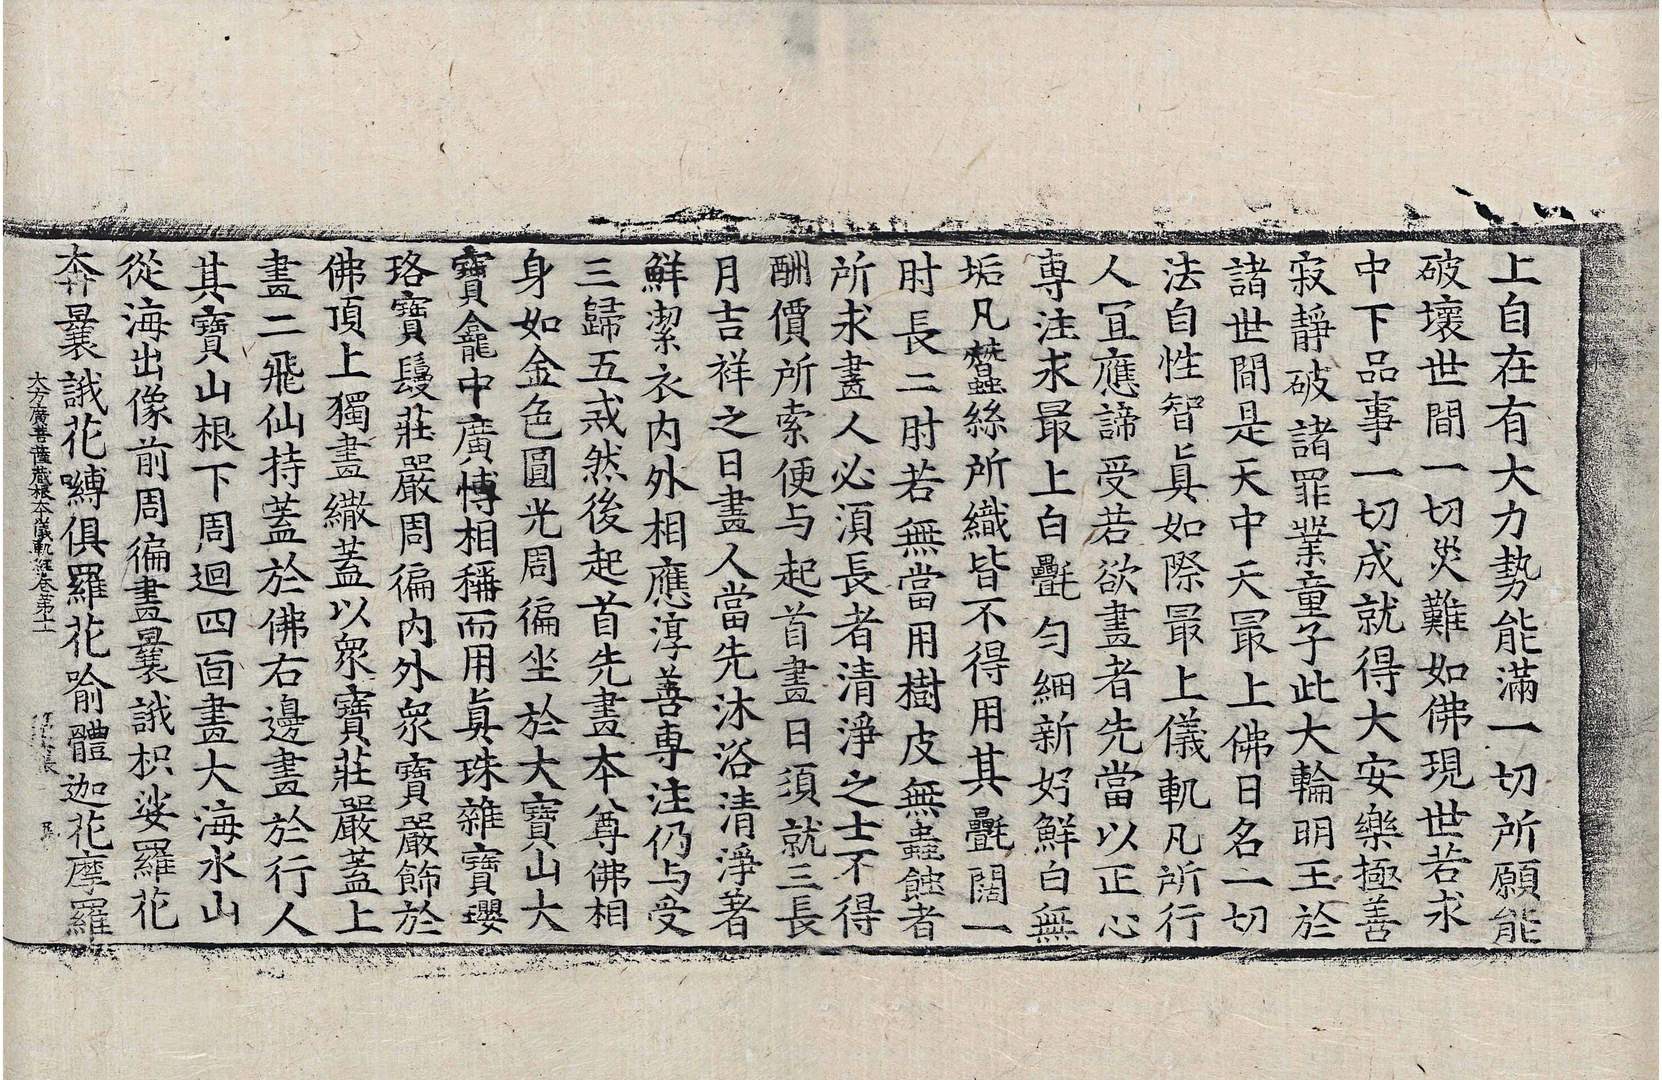 上自在有大力勢能滿一切所願能
破壞世間一切災難如佛現世若求
中下品事一切成就得大安樂極善
寂靜破諸罪業童子此大輪明王於
諸世間是天中天最上佛日名一切
法自性智真如際最上儀軌凡所行
人冝應諦受若欲畫者先當以正心
専注求最上白㲲勻細新好鮮白無
垢凡蠶絲所織皆不得用其㲲闊一
肘長二肘若無當用樹皮無蟲蝕者
所求畫人必須長者清淨之士不得
酬價所索便与起首畫日須就三長
月吉祥之日畫人當先沐浴清淨著
鮮潔衣内外相應淳善専注仍与受
三歸五戒然後起首先畫本尊佛相
身如金色圓光周徧坐於大寶山大
寶龕中廣愽相稱而用真珠雜寶瓔
珞寶鬘莊嚴周徧内外衆寶嚴飾於
佛頂上獨畫繖蓋以衆寶莊嚴蓋上
畫二飛仙持蓋於佛右邊畫於行人
其寶山根下周迴四面畫大海水山
從海出像前周徧畫曩誐枳娑羅花
奔曩誐花嚩俱羅花喻體迦花摩羅
大方廣菩薩藏根本儀軌經卷第十一
張